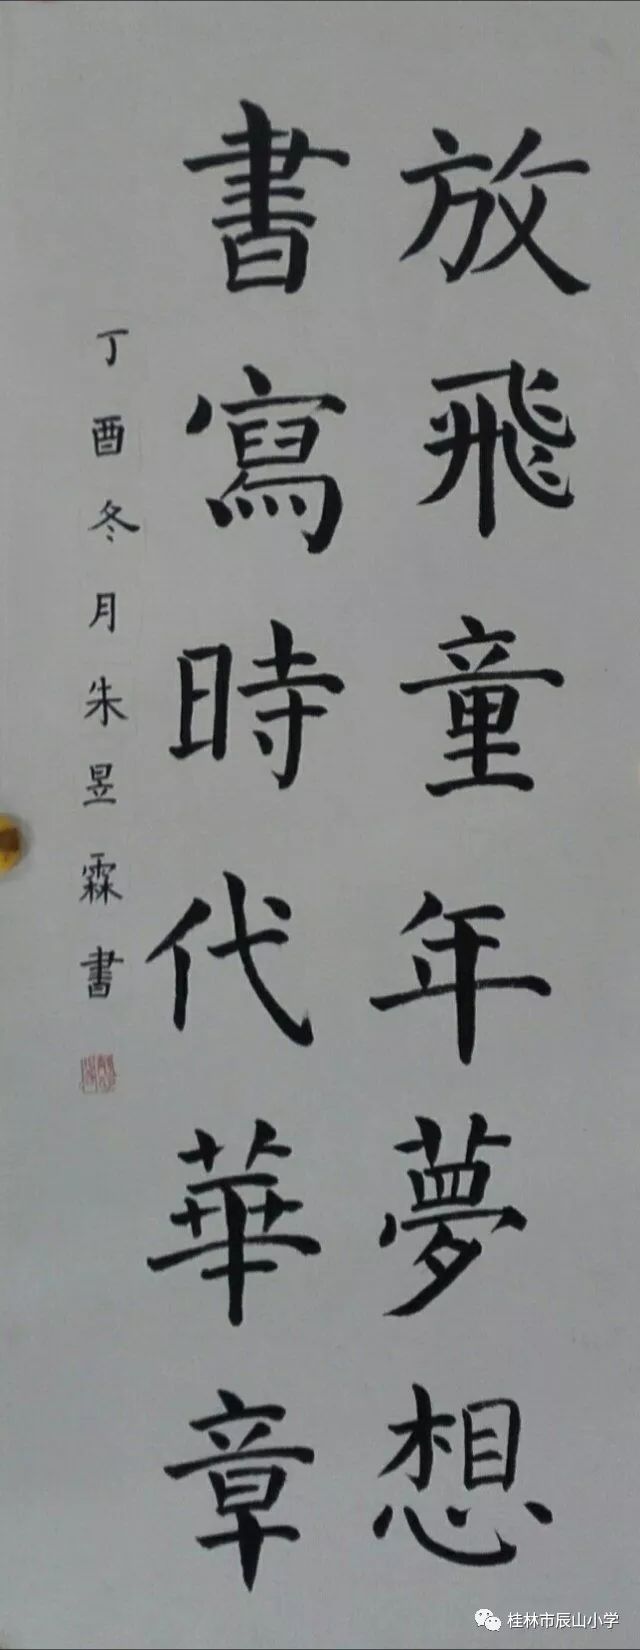 放飛童年夢想
書寫時代華章
丁酉冬月朱昱霖書
桂林市辰山小学